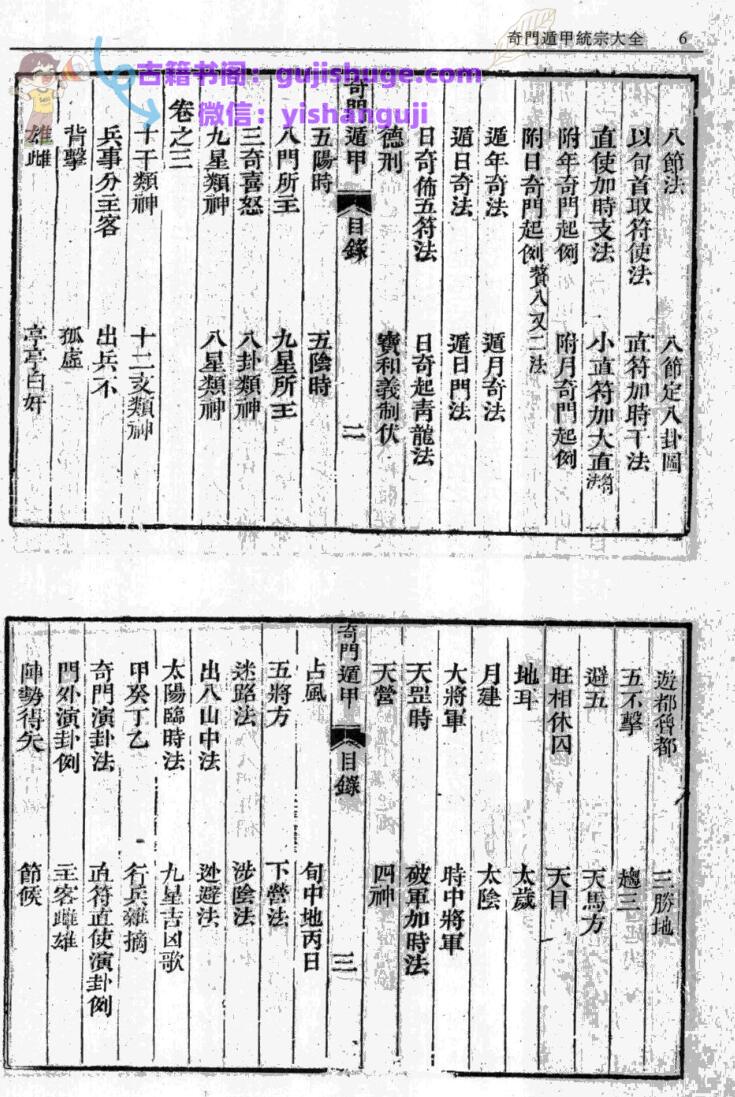 奇門遁甲統宗大全 6
古籍书阁：gujishuge.com
微信：yishanguji
八節法 八節定八卦圖
以旬首取符使法 直符加時干法
直使加時支法 小直符加大直符法
附年奇門起例 附月奇門起例
附日奇門起例贅八又二法
遁年奇法 遁月奇法
遁日奇法 遁日門法
日奇佈五符法 日奇起青龍法
德刑 寶和義制伏
奇門遁甲 目錄 二
五陽時 五陰時
八門所主 九星所主
三奇喜怒 八卦類神
九星類神 八星類神
卷之三
十干類神 十二支類神
兵事分主客 出兵不
背擊 孤虛
雄雌 亭亭白奸
遊都魯都 三勝地
五不擊 趨三
避五 天馬方
旺相休囚 天目
地耳 太歲
月建 太陰
大將軍 時中將軍
天罡時 破軍加時法
天營 四神
奇門遁甲 目錄 三
占風 旬中地丙日
五將方 下營法
迷路法 涉陰法
出入山中法 迯避法
太陽臨時法 九星吉凶歌
甲癸丁乙 行兵雜摘
奇門演卦法 直符直使演卦例
門外演卦例 主客雌雄
陣勢得失 節候